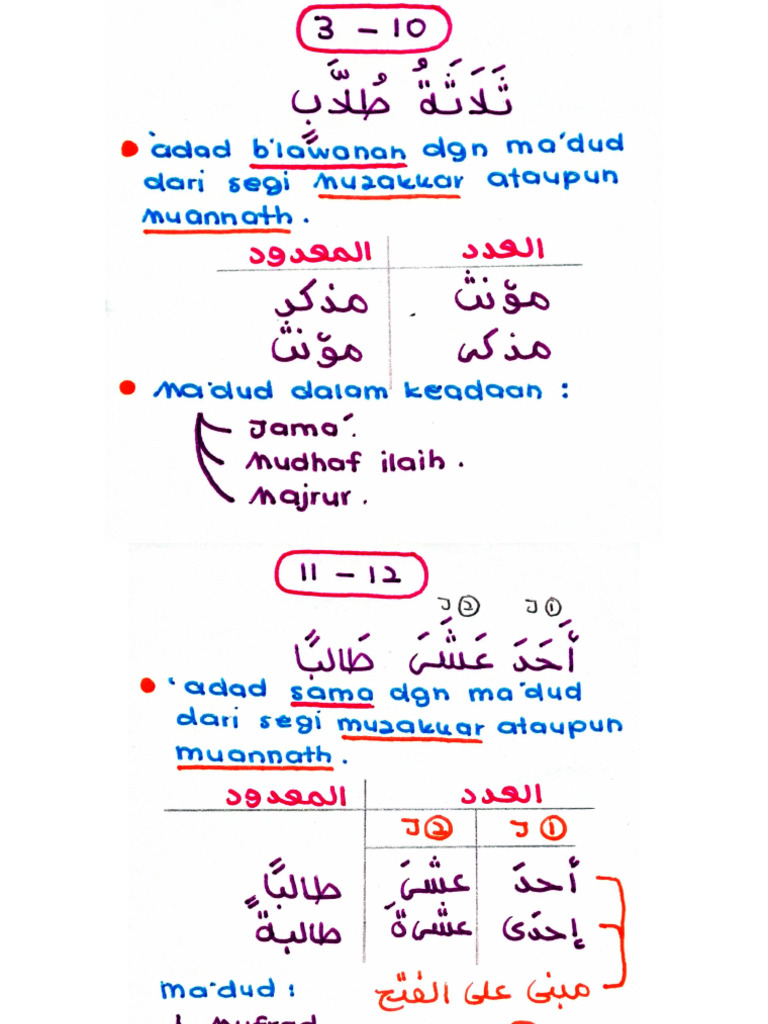 3 - 10
ثَلَاثَةُ طُلَّابٍ
• 'adad b'lawanan dgn ma'dud
dari segi muzakkar ataupun
muannath.
العدد المعدود
مؤنث مذكر
مذكر مؤنث
• Ma'dud dalam keadaan :
Jama'.
Mudhaf ilaih.
Majrur.
11 - 12
J① J②
أَحَدَ عَشَرَ طَالبًا
• 'adad sama dgn ma'dud
dari segi muzakkar ataupun
muannath.
العدد المعدود
J① J②
أحدَ عشرَ طالبًا
إحدَى عشرةَ طالبةً
ma'dud :
مبنى على الفتح
1. Mufrad